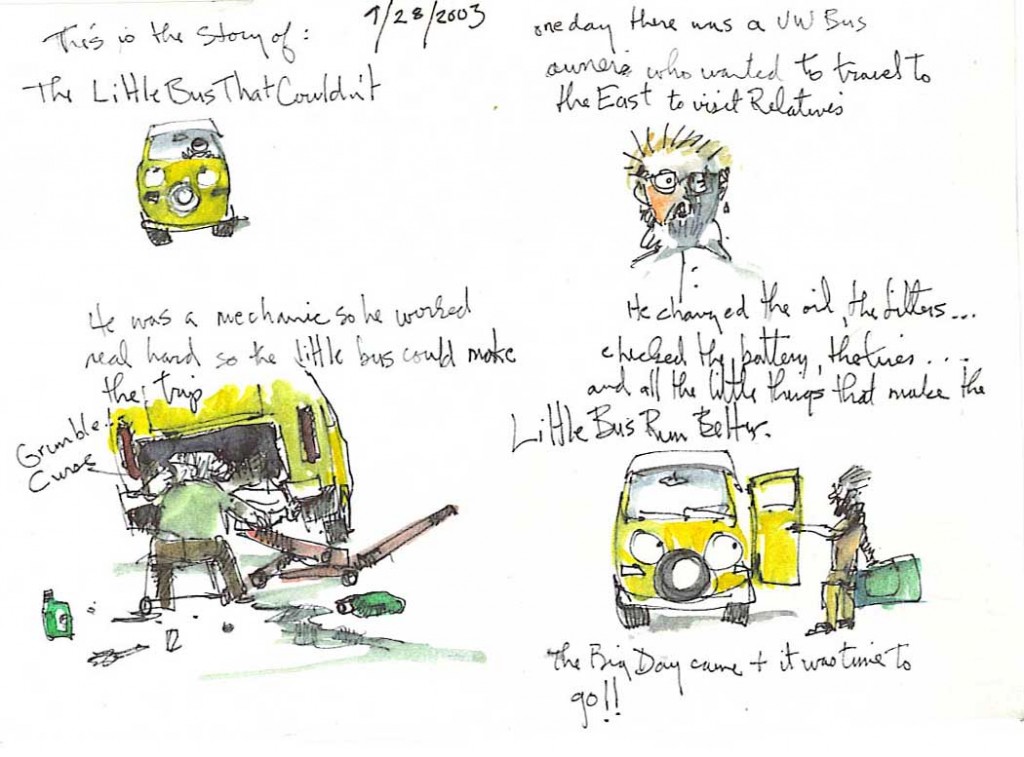 9/28/2003
This is the Story of:
The Little Bus That Couldn't
one day there was a VW Bus
owner who wanted to travel to
the East to visit Relatives
He was a mechanic so he worked
real hard so the little bus could make
the trip
Grumble..
Curse
He changed the oil, the filters...
checked the battery, the tires....
and all the little things that make the
Little Bus Run Better.
The Big Day came + it was time to
go!!